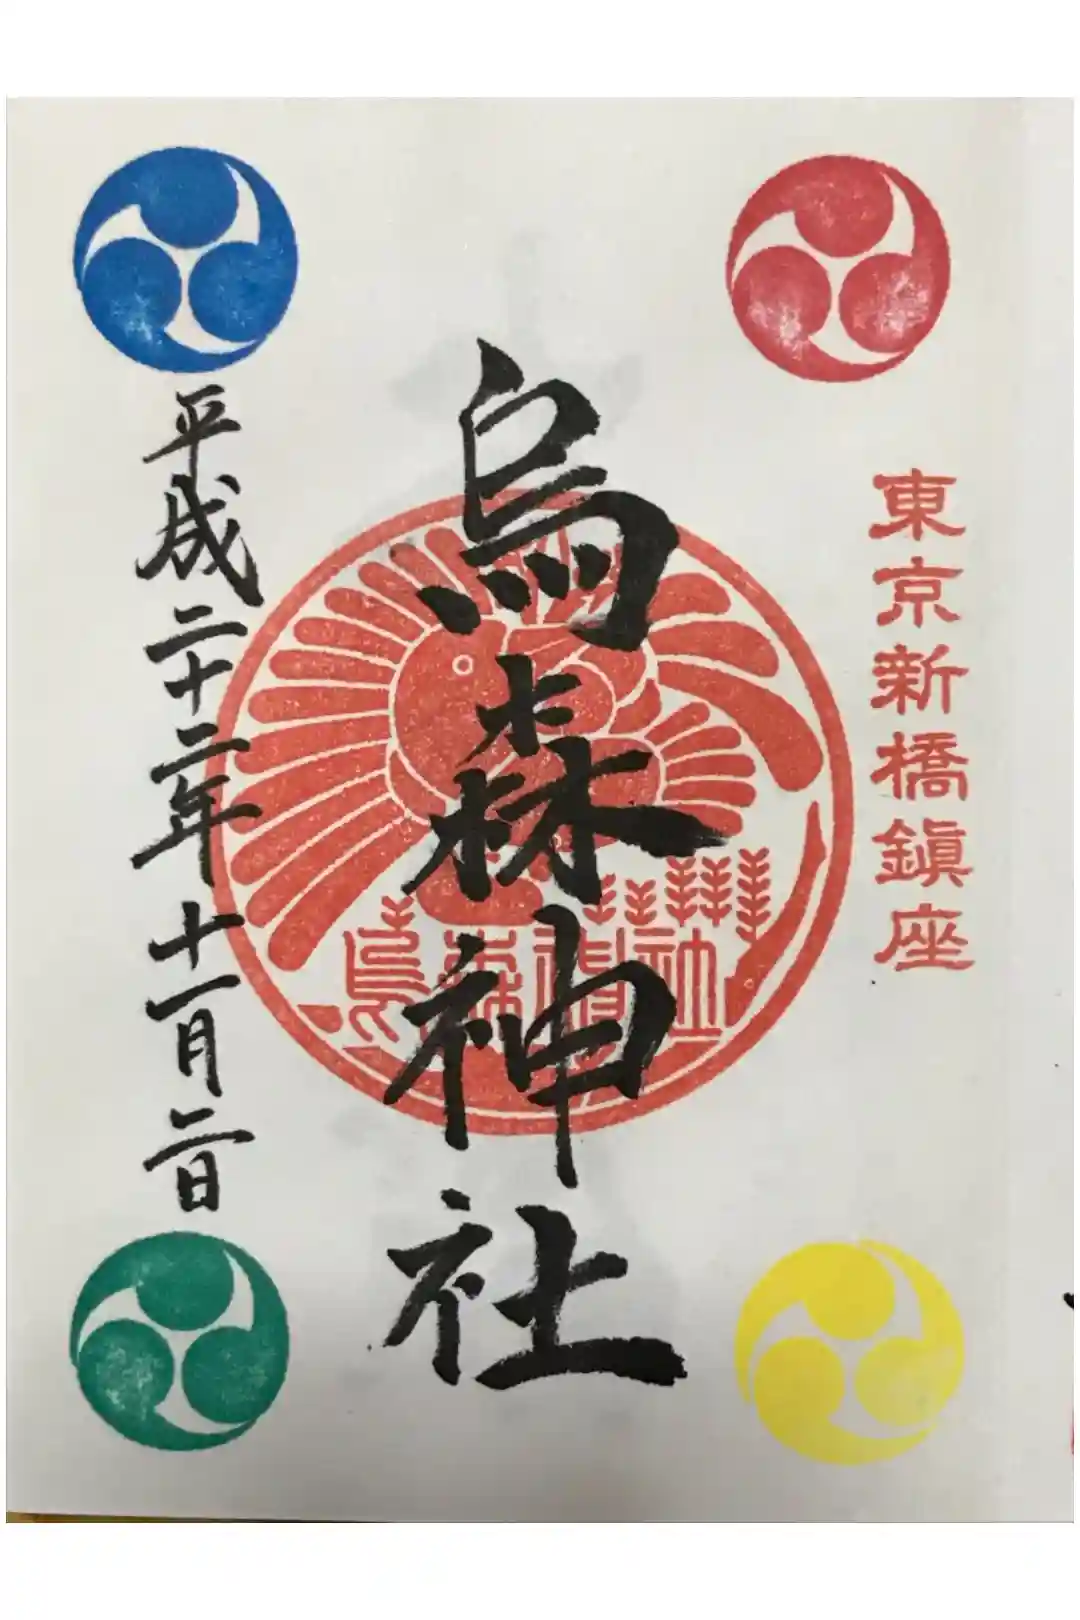 東京新橋鎭座
烏森神社
烏森神社
平成二十二年十一月二日